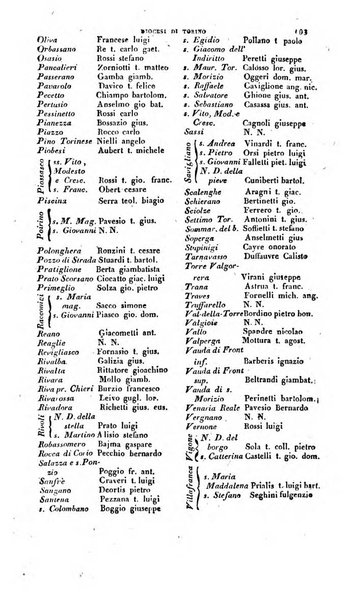 DIOCESI DI TORINO 193
Oliva Francese luigi
Orbassano Re t. carlo gaet.
Osasio Rossi stefano
Pancalieri Zorniotti t. matteo
Passerano Gamba giamb.
Pavarolo Davico t. felice
Pecetto Chiampo bartolom.
Pertusio Anselmo gio bat.
Pessinetto Rossi gius.
Pianezza Bossazio gius.
Piazzo Rocco t. gius.
Pino Torinese Nielli angelo
Piobesi Aubert t. michele
Piossasco
ss. Vito,
Modesto
e Cresc. Rossi t. gio. franc.
s. Franc. Obert cesare
Piscina Serra teol. biagio
Poirino
s. M. Mag. Pavesio t. gius.
s. Giovanni N. N.
Polonghera Ronzini t. cesare
Pozzo di Strada Stuardi t. bartol.
Pratiglione Berta giambatista
Prato Scorsano Ciocatto t. giac. luigi
Primeglio Solza gio. pietro
Racconigi
s. Maria
mag. Sacco simone
s. Giovanni Piasco gio. dom.
Reano Giacometti ant.
Reaglie N. N.
Revigliasco Fornalio t. gius.
Rivalba Galizia t. gius.
Rivalta Rittatore gioachino
Rivara Mollo giamb.
Riva pr. Chieri Burzio francesco
Rivarossa Lesna gio. bat.
Rivadora Richetti gius. eus.
Rivoli
N. D. della
stella Prato luigi
s. Martino Alisio stefano
Robassomero Bajma gaspare
Rocca di Corio Pecchio bernardo
Salazza e s. Pon.
zio Poggio fr. ant.
Sanfrè Craveri t. luigi
Sangano Deorti pietro
Santena Pezzana t. luigi
s. Colombano Boggio giuseppe
s. Egidio Pollano t paolo
s. Giacomo dell'
Indirizzo Peretti giuseppe
s. Maur. Tor. Calosso lor. gius.
s. Morizio Oggeri dom. mar.
s. Raffaele Gaviglione ang. nic.
s. Salvatore Ghione gius. ant.
s. Sebastiano Casassa gius. ant.
s. Vito, Mod. e
Cresc. Cagnoli giuseppe
Sassi N. N.
Savigliano
s. Andrea Vinardi t. franc.
s. Pietro Orsi pietro luigi
s. Giovanni Falletti piet. luigi
N. D. della
pieve Cuniberti bartol.
Scalenghe Aragni t. giac.
Schierano Bertinetti giac.
Sciolze Ferrero t. giac.
Settimo Tor. Antonini t. gius.
Sommar. del b. Smeriglio t. luigi
Soperga Anselmetti gius
Stupinigi Cayre onorato
Tarnavasso Duffaure Calisto
Torre Valgor-
rera Virani giuseppe
Trana Astrua t. gius.
Traves Fornelli mich. ang.
Truffarello N. N.
Val-della-Torre Bordino pietro hon.
Valgioie N. N.
Vallo Spandre nicolao
Valperga Mottura t. agost.
Vauda di Front
inf. Barberis ignazio
Vauda di Front
sup. Beltrandi giambat.
Vauda di s.
Morizio Perinetti bartolom.
Venaria Reale Pavesio Bernardo
Vergnano N. N.
Vernone Rossi t. luigi
Vigone
N. D. del
borgo Sola t. coll. pietro
s. Catterina Castelli t. gio. dom.
Villafranca
s. Maria
Maddalena Prialis t. luigi bart.
s. Stefano Seghini fulgenzio